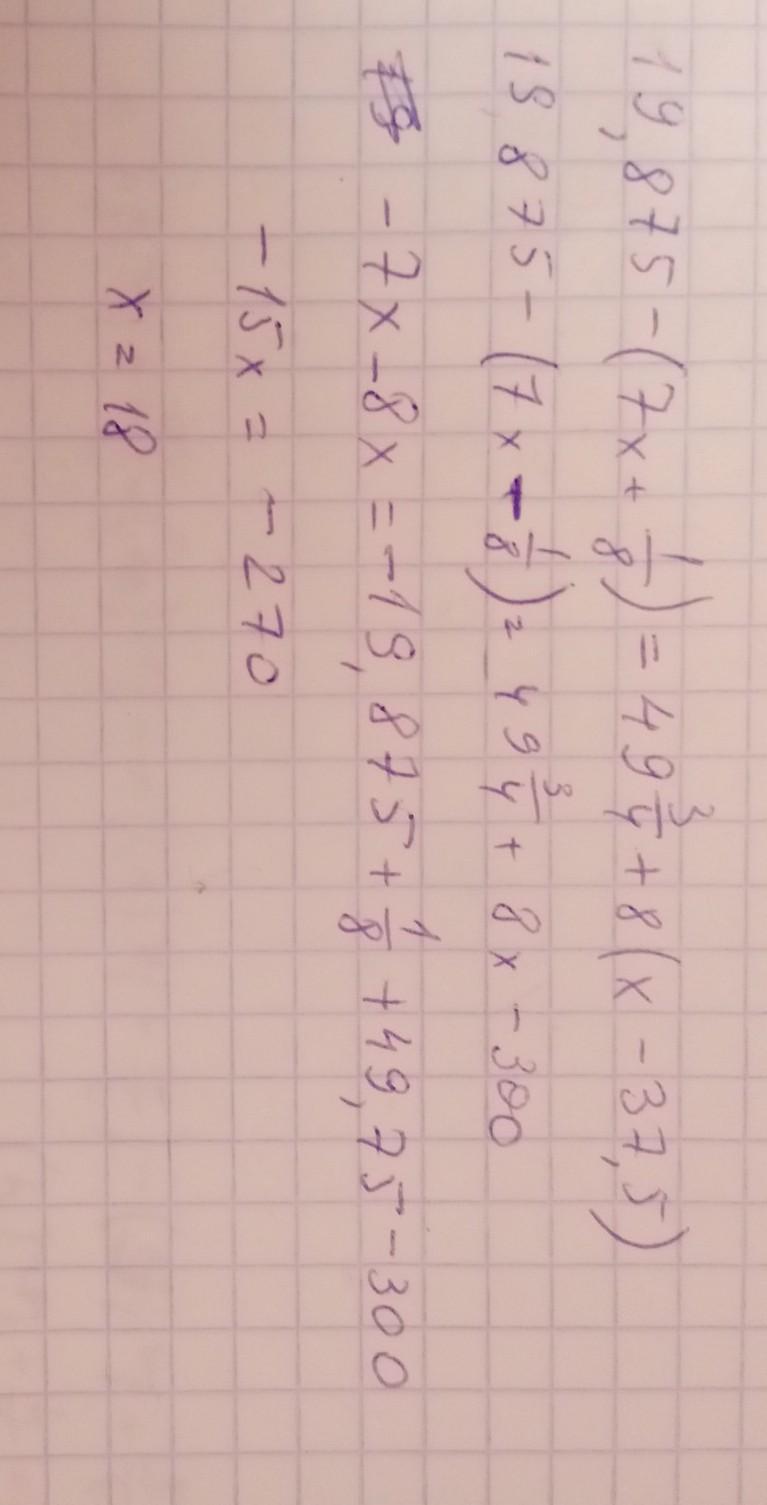 19,875 - (7x + 1/8) = 49 3/4 + 8(x - 37,5)
19,875 - (7x - 1/8) = 49 3/4 + 8x - 300
-7x - 8x = -19,875 + 1/8 + 49,75 - 300
-15x = -270
x = 18